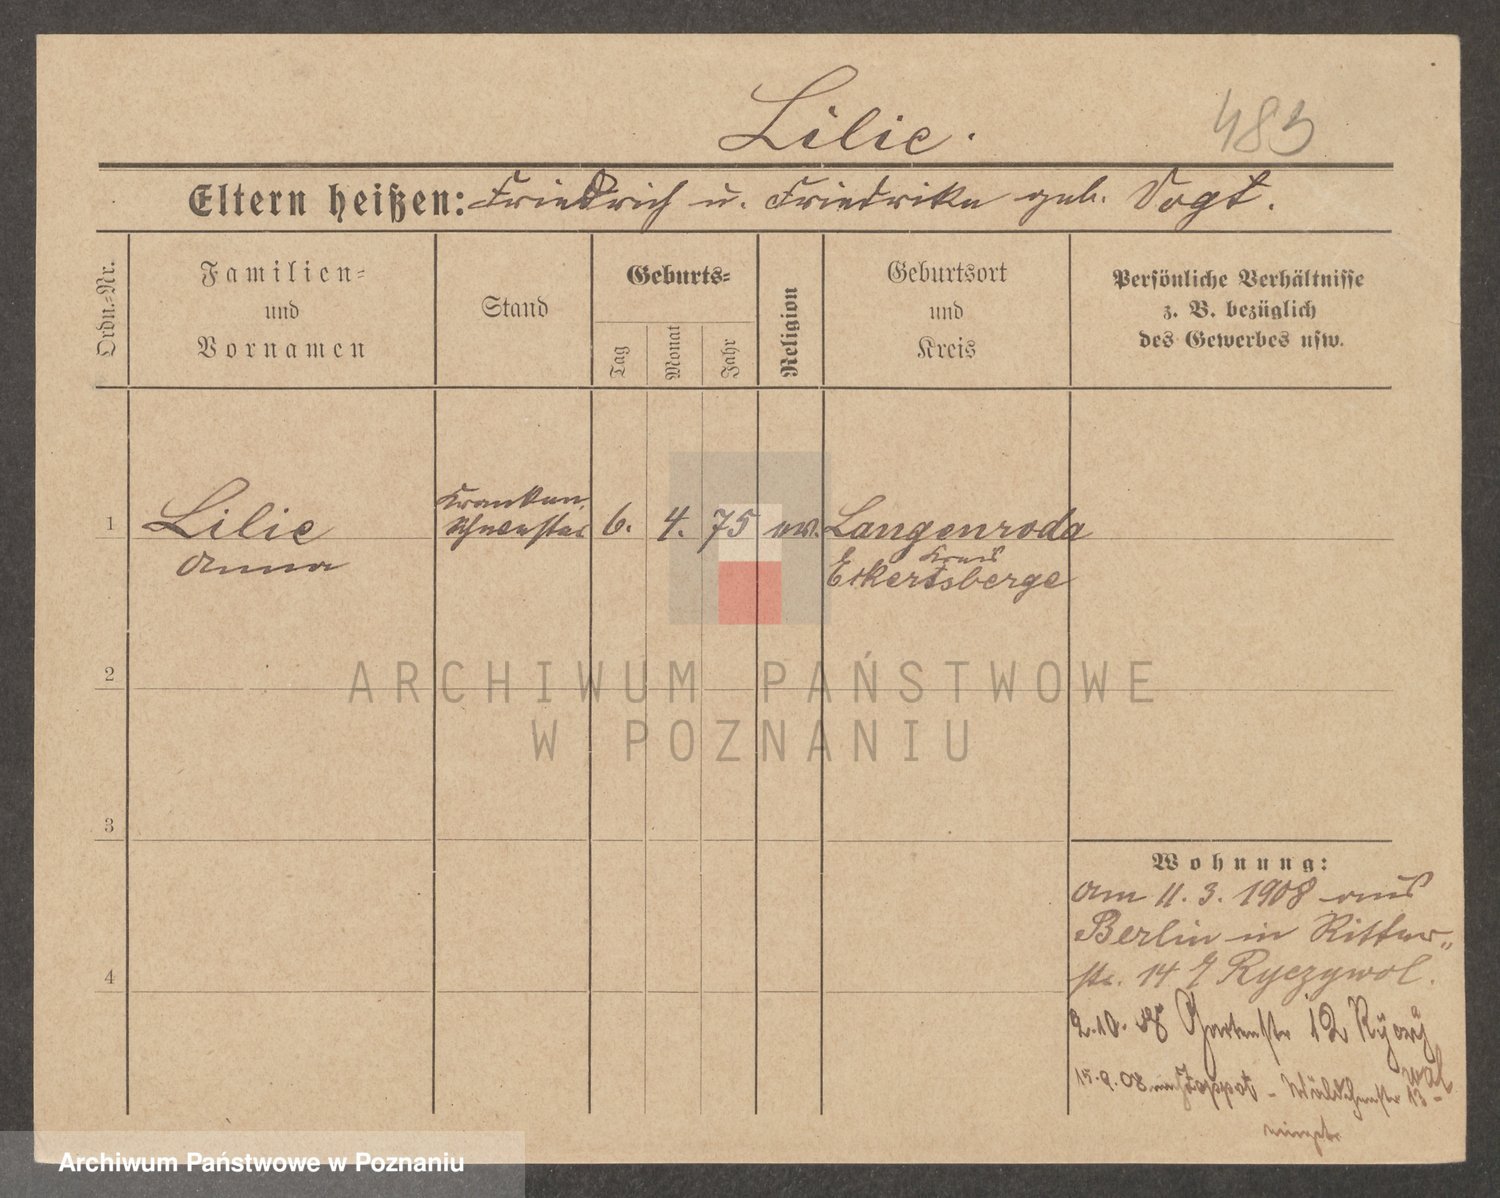 Lilie.
483
Eltern heißen: Friedrich u. Friedrike geb. Vogt.
Ordn.-Nr.
Familien-
und
Vornamen
Stand
Geburts-
Tag
Monat
Jahr
Religion
Geburtsort
und
Kreis
Persönliche Verhältnisse
z. B. bezüglich
des Gewerbes usw.
1
Lilie
Anna
Kranken-
schwester
6.
4.
75
ev.
Langenroda
Kreis
Eckertsberge
2
ARCHIWUM PAŃSTWOWE
W POZNANIU
3
4
Wohnung:
am 11. 3. 1908 aus
Berlin in Ritter-
str. 14 Ryczywol.
2.10. 08 Gartenstr 12 Ryczy
wol
15.9.08 nach Zoppot - Wäldchenstr 13-
Archiwum Państwowe w Poznaniu